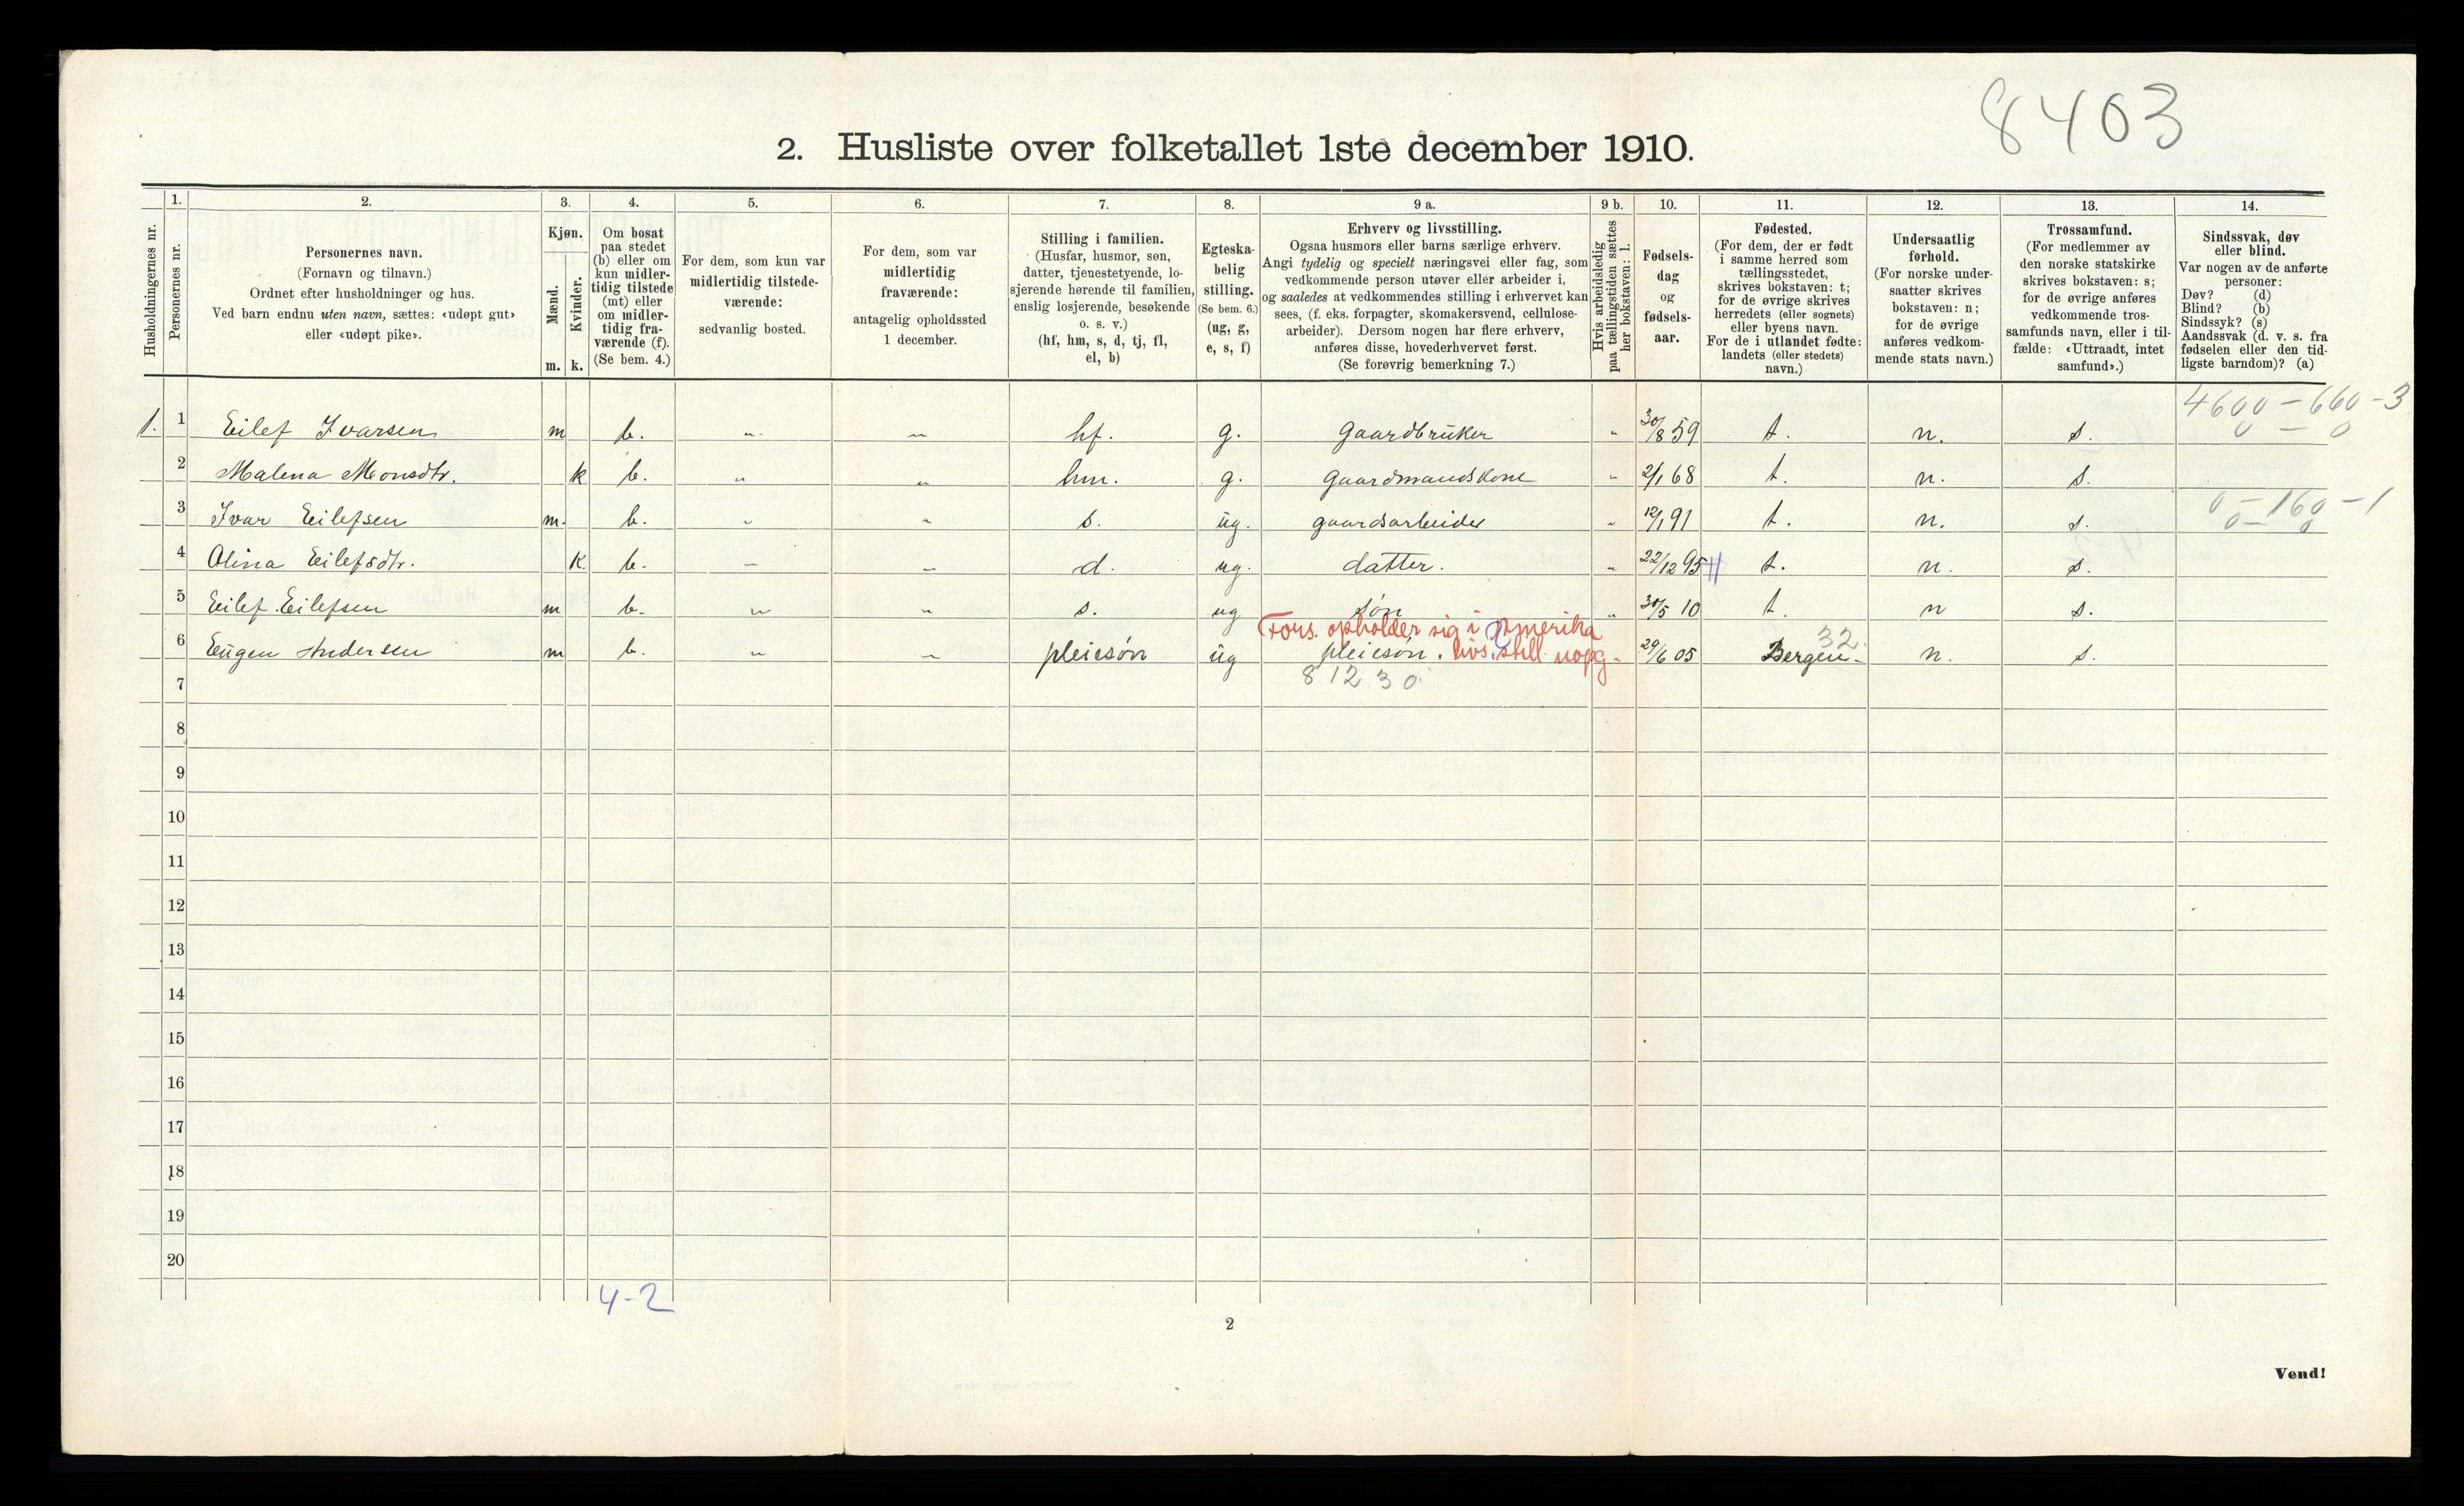 8403
2. Husliste over folketallet 1ste december 1910.
Husholdningernes nr.
1.
Personernes nr.
2.
Personernes navn.
(Fornavn og tilnavn.)
Ordnet efter husholdninger og hus.
Ved barn endnu uten navn, sættes: «udøpt gut»
eller «udøpt pike».
3.
Kjøn.
Mænd.
Kvinder.
m. k.
4.
Om bosat
paa stedet
(b) eller om
kun midler-
tidig tilstede
(mt) eller
om midler-
tidig fra-
værende (f).
(Se bem. 4.)
5.
For dem, som kun var
midlertidig tilstede-
værende:
sedvanlig bosted.
6.
For dem, som var
midlertidig
fraværende:
antagelig opholdssted
1 december.
7.
Stilling i familien.
(Husfar, husmor, søn,
datter, tjenestetyende, lo-
sjerende hørende til familien,
enslig losjerende, besøkende
o. s. v.)
(hf, hm, s, d, tj, fl,
el, b)
8.
Egteska-
belig
stilling.
(Se bem. 6.)
(ug, g,
e, s, f)
9 a.
Erhverv og livsstilling.
Ogsaa husmors eller barns særlige erhverv.
Angi tydelig og specielt næringsvei eller fag, som
vedkommende person utøver eller arbeider i,
og saaledes at vedkommendes stilling i erhvervet kan
sees, (f. eks. forpagter, skomakersvend, cellulose-
arbeider). Dersom nogen har flere erhverv,
anføres disse, hovederhvervet først.
(Se forøvrig bemerkning 7.)
9 b.
Hvis arbeidsledig
paa tællingstiden sættes
her bokstaven: l.
10.
Fødsels-
dag
og
fødsels-
aar.
11.
Fødested.
(For dem, der er født
i samme herred som
tællingsstedet,
skrives bokstaven: t;
for de øvrige skrives
herredets (eller sognets)
eller byens navn.
For de i utlandet fødte:
landets (eller stedets)
navn.)
12.
Undersaatlig
forhold.
(For norske under-
saatter skrives
bokstaven: n;
for de øvrige
anføres vedkom-
mende stats navn.)
13.
Trossamfund.
(For medlemmer av
den norske statskirke
skrives bokstaven: s;
for de øvrige anføres
vedkommende tros-
samfunds navn, eller i til-
fælde: «Uttraadt, intet
samfund».)
14.
Sindssvak, døv
eller blind.
Var nogen av de anførte
personer:
Døv? (d)
Blind? (b)
Sindssyk? (s)
Aandssvak (d. v. s. fra
fødselen eller den tid-
ligste barndom)? (a)
4600 - 660 - 3
0 - 0
1. 1 Eilef Ivarsen m b. " " hf. g. Gaardbruker " 30/8 59 t. n. s.
2 Malena Monsdtr. k b. " " hm. g. gaardmandskone " 2/1 68 t. n. s.
0 - 160 - 1
0 - 0
3 Ivar Eilefsen m. b. " " s. ug. gaardsarbeider " 12/1 91 t. n. s.
4 Olina Eilefsdtr. k. b. " " d. ug. datter. " 22/12 95 t. n. s.
5 Eilef Eilefsen m b. " " s. ug søn " 30/5 10 t. n s.
Fors. opholder sig i Amerika
32.
6 Eugen Andersen m b. " " pleiesøn ug pleiesøn. livs. still. uopg. 29/6 05 Bergen. n. s.
8 12 30
7
8
9
10
11
12
13
14
15
16
17
18
19
20
4-2
2
Vend!